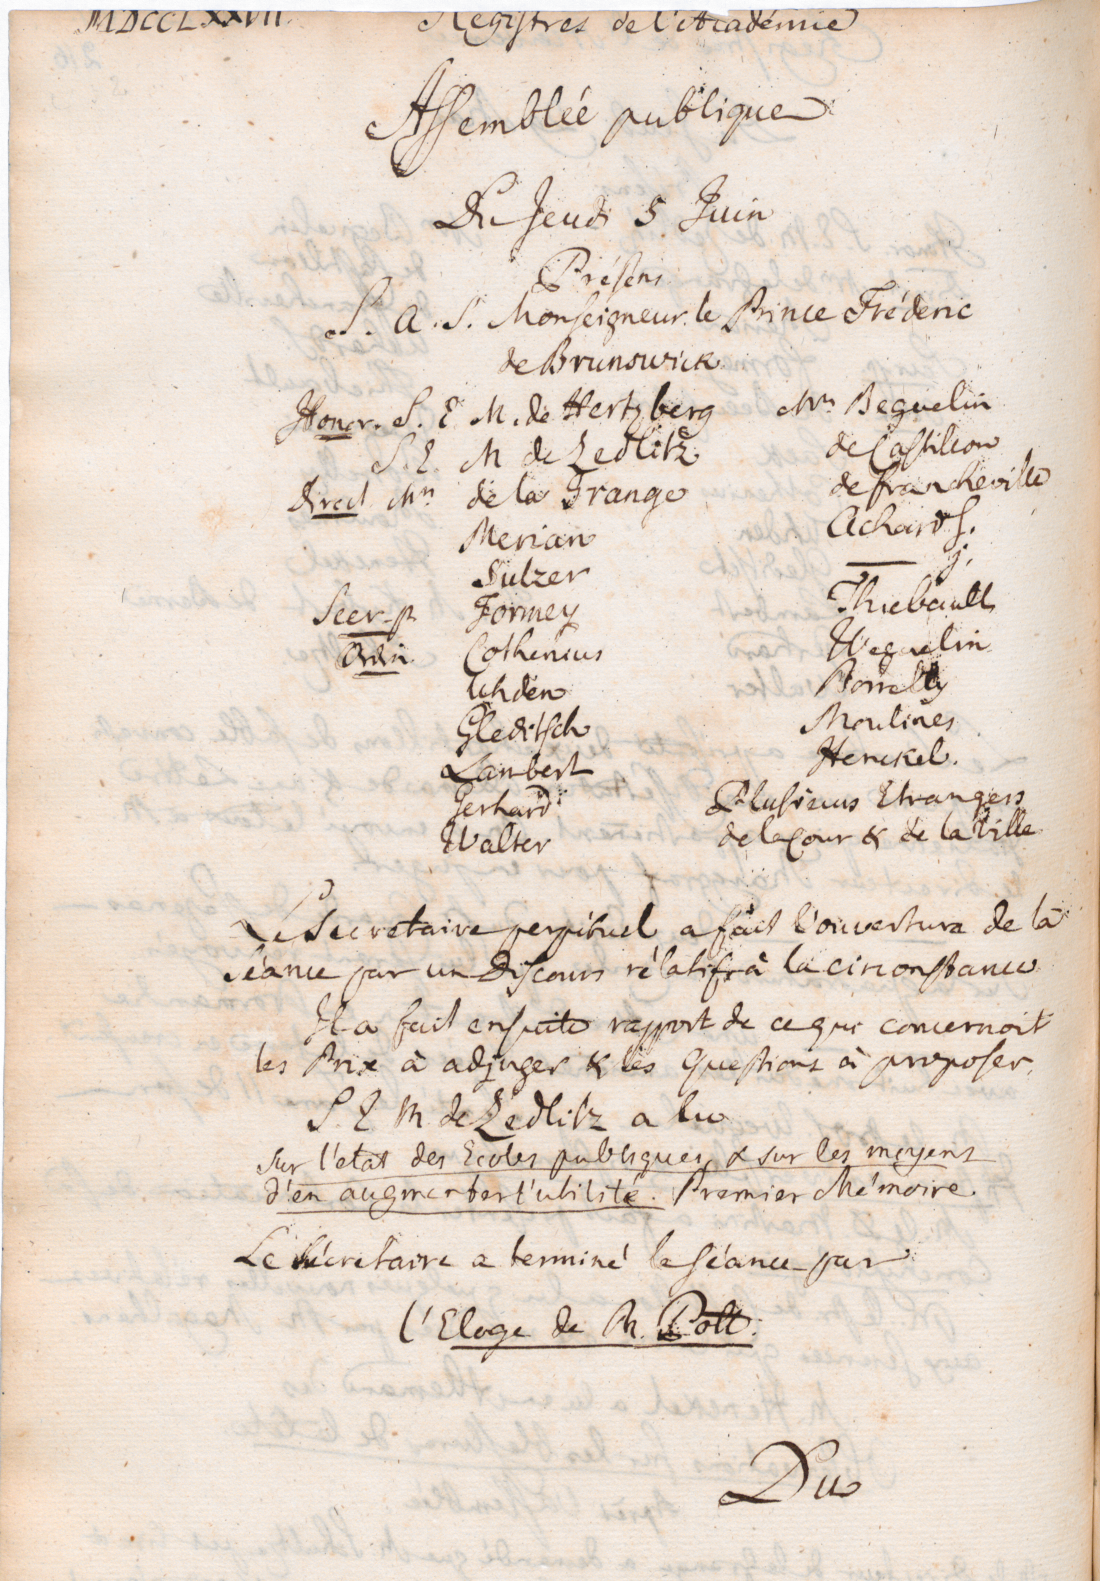 MDCCLXXVII. Registres de l'Académie
Assemblée publique
Du Jeudi 5 Juin
Présens
S. A. S. Monseigneur le Prince Fréderic
de Brunswick
Honor. S. E. M. de Hertzberg
S. E. M de Zedlitz
direct Mrs de la Grange
Merian
Sulzer
Secr. p. Formey
Ordin. Cothenius
Uhden
Gleditsch
Lambert
Gerhard
Walter
Mrs Beguelin
de Castillon
de francheville
Achard S.
— j.
Thiebault
Weguelin
Borrelly
Moulines
Henckel.
Plusieurs Etrangers
de la Cour & de la Ville
Le Secretaire perpétuel a fait l'ouverture de la
séance par un Discours rélatif à la circonstance
Il a fait ensuite rapport de ce qui concernoit
les Prix à adjuger & les Questions à proposer.
S. E M de Zedlitz a lu
sur l'etat des Ecoles publiques, & sur les moyens
d'en augmenter l'utilité. Premier Mémoire.
Le Sécretaire a terminé la séance par
l'Eloge de M. Pott.
Du